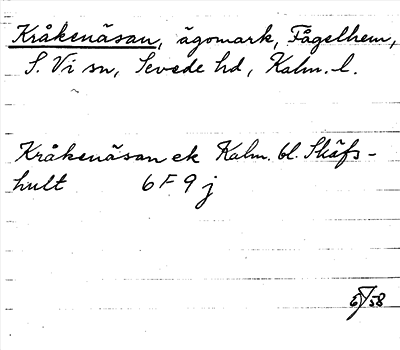 Kråkenäsan, ägomark, Fågelhem,
S. Vi sn, Sevede hd, Kalm. l.
Kråkenäsan ek Kalm. bl. Skäfs-
hult 6 F 9 j
58